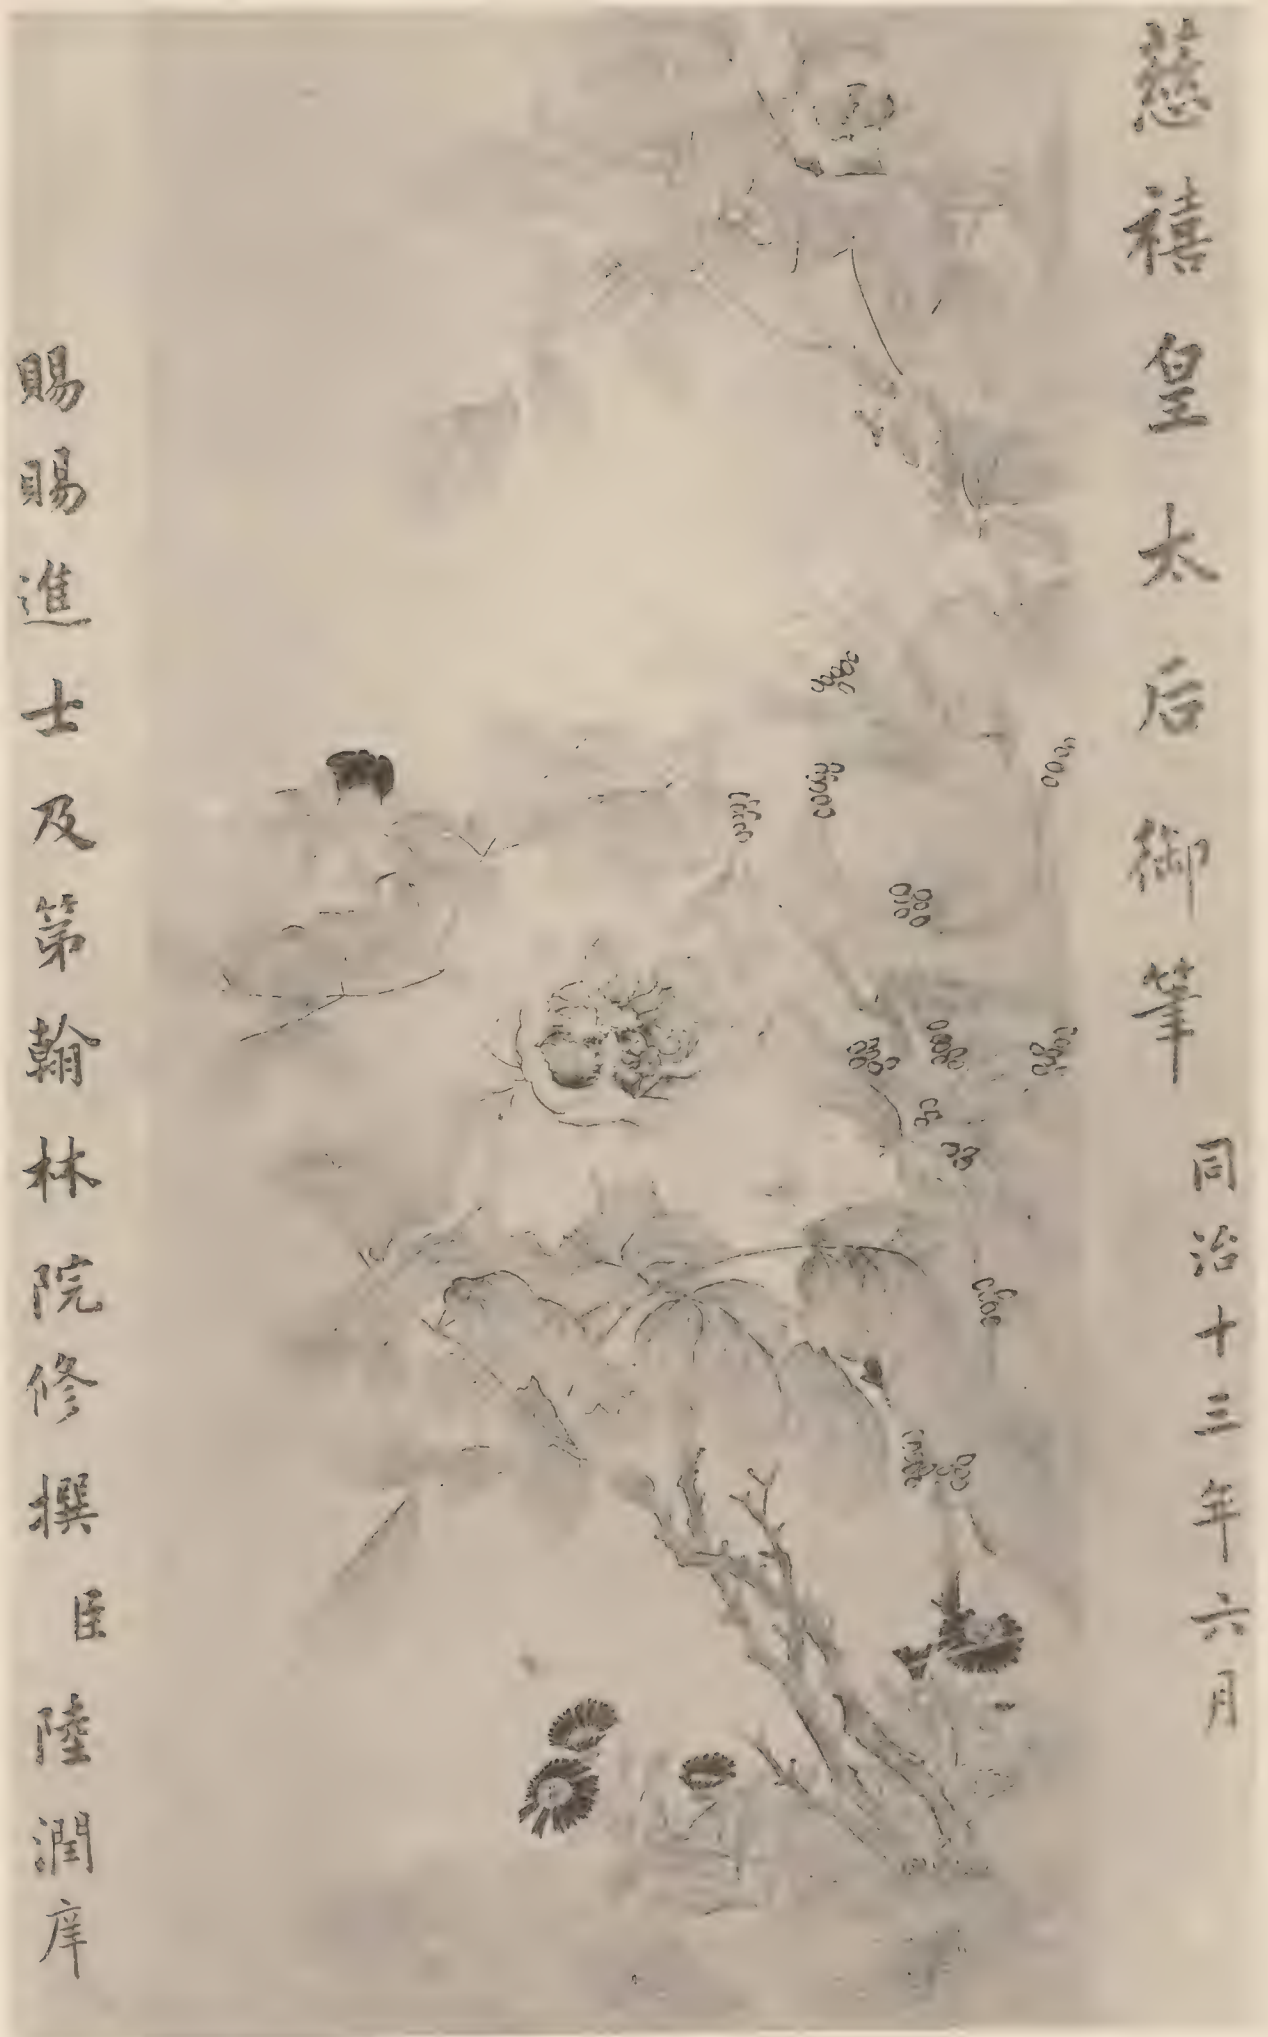 慈禧皇太后御筆
同治十三年六月
賜賜進士及第翰林院修撰臣陸潤庠